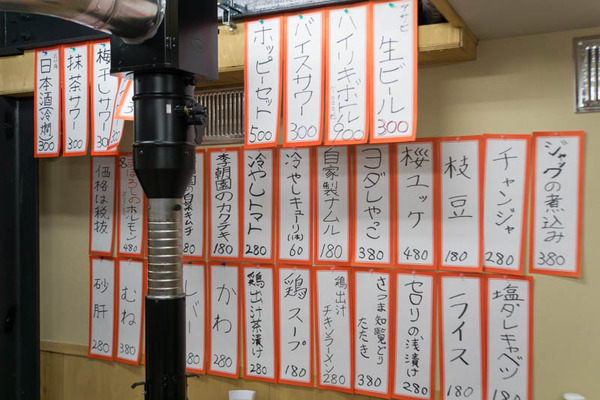 アサヒ
生ビール
300
ハイリキボトル
900
バイスサワー
300
ホッピーセット
500
梅干しサワー
300
抹茶サワー
300
日本酒(冷・燗)
300
ジャヴの煮込み
380
チャンジャ
280
枝豆
180
桜ユッケ
480
ヨダレやっこ
380
自家製ナムル
180
冷やしキューリ(1本)
60
冷やしトマト
280
李朝園のカクテキ
180
の白菜キムチ
80
ホルモン
480
価格は税抜
塩ダレキャベツ
180
ライス
180
セロリの浅漬け
280
さつま知覧どり
たたき
380
鶏出汁
チキンラーメン
280
鶏スープ
180
鶏出汁茶漬け
280
かわ
280
レバー
80
むね
380
砂肝
280